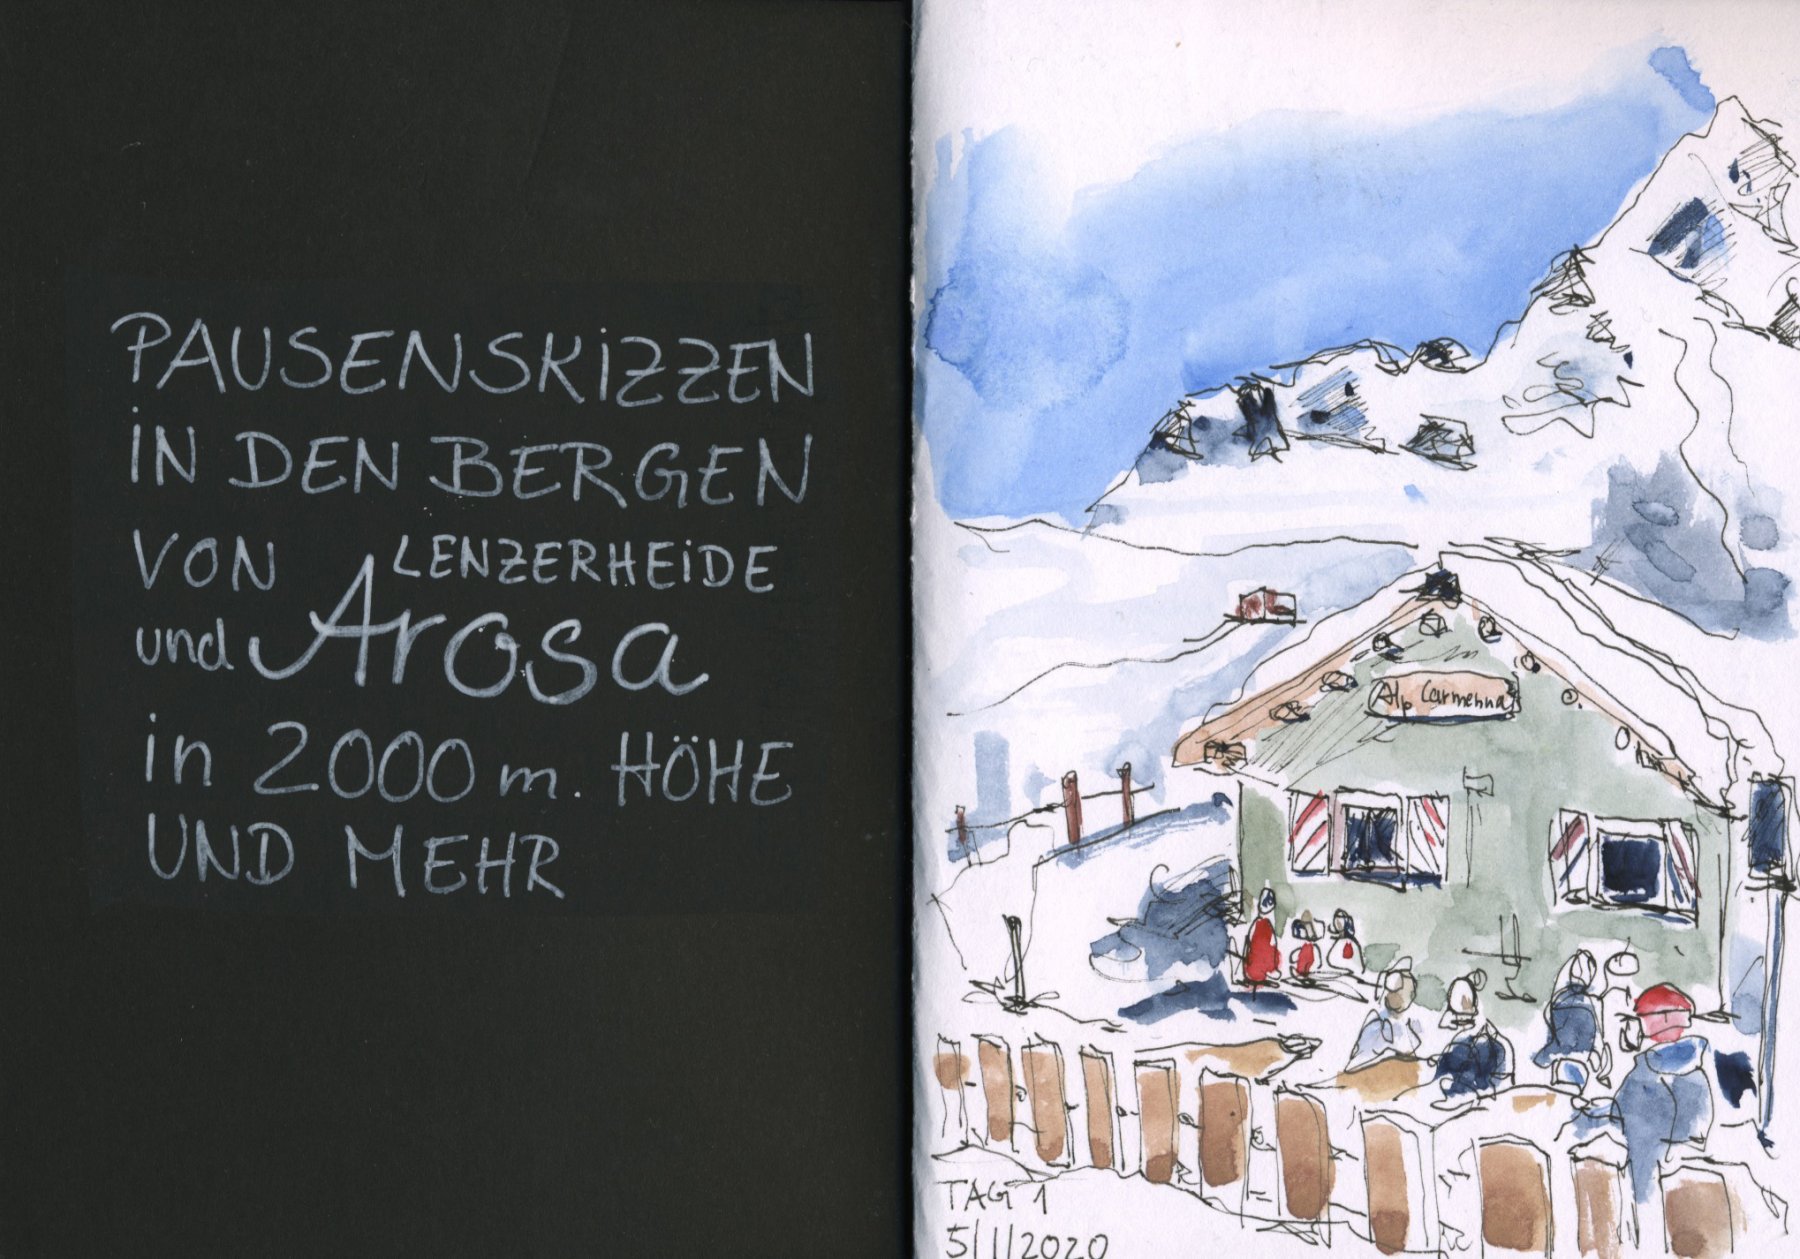 PAUSENSKIZZEN
IN DEN BERGEN
VON LENZERHEIDE
und Arosa
in 2000 m. HÖHE
UND MEHR
Alp Carmenna
TAG 1
5/1/2020